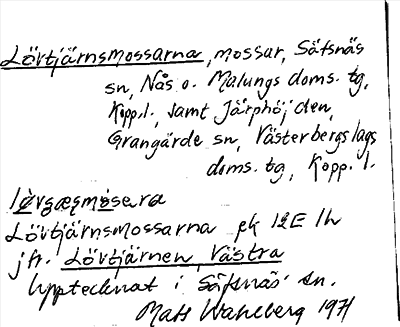 Lövtjärnsmossarna, mossar, Säfsnäs
sn, Nås o. Malungs doms. tg,
Kopp. l., samt Järphöjden,
Grangärde sn, Västerbergslags
doms. tg, Kopp. l.
Lövtjärnsmossarna ek 12E 1h
jfr. Lövtjärnen, Västra
Upptecknat i Säfsnäs sn.
Mats Wahlberg 1971